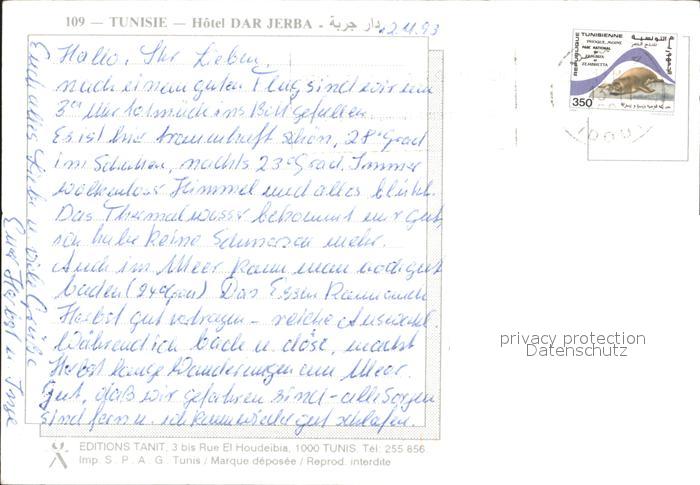 109 — TUNISIE — Hôtel DAR JERBA - دار جربة
2.11.93
Hallo, Ihr Lieben,
nach einem guten Flug sind wir um
3°° Uhr todmüde ins Bett gefallen.
Es ist hier traumhaft schön, 28° Grad
im Schatten, nachts 23° Grad. Immer
wolkenloser Himmel und alles blüht.
Das Thermalwasser bekommt mir gut,
ich habe keine Schmerzen mehr.
Auch im Meer kann man noch gut
baden (24° Grad) Das Essen kann auch
Herbst gut vertragen – reiche Auswahl.
Während ich bade u. döse, macht
Herbst lange Wanderungen am Meer.
Gut, daß wir gefahren sind – alle Sorgen
sind fern u. ich kann wieder gut schlafen.
Euch alles Liebe u. viele Grüße
Eure Herbst u. Inge
REPUBLIQUE TUNISIENNE
PHOQUE MOINE
PARC NATIONAL
ZEMBRETTA
350
EDITIONS TANIT, 3 bis Rue El Houdeibia, 1000 TUNIS. Tél: 255 856
Imp. S. P. A. G. Tunis / Marque déposée / Reprod. interdite
privacy protection
Datenschutz